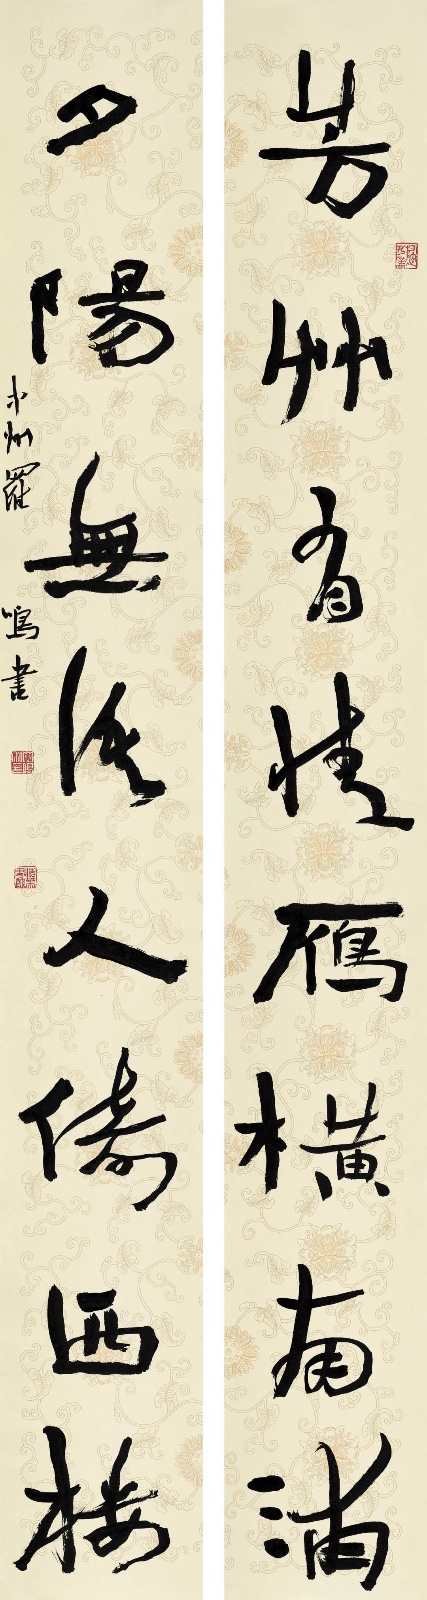 芳艸有情雁橫南浦
夕陽無語人倚西樓
州羅鳴書